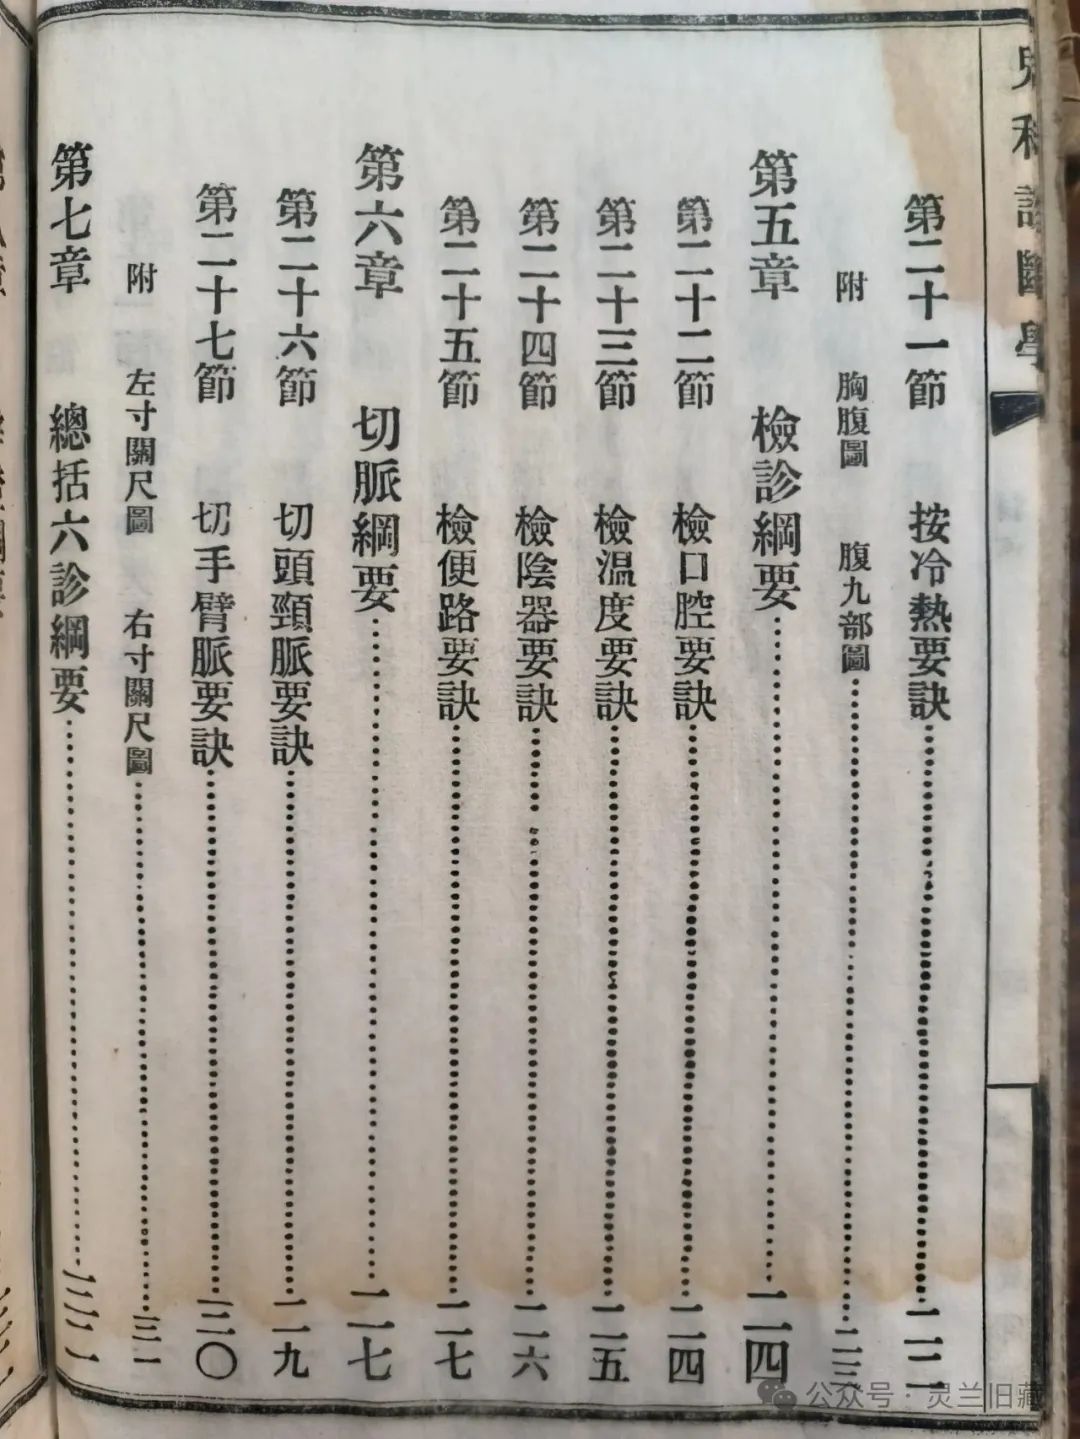 兒科診斷學
第二十一節 按冷熱要訣……二二
附 胸腹圖 腹九部圖……二三
第五章 檢診綱要……二四
第二十二節 檢口腔要訣……二四
第二十三節 檢溫度要訣……二五
第二十四節 檢陰器要訣……二六
第二十五節 檢便路要訣……二七
第六章 切脈綱要……二七
第二十六節 切頭頸脈要訣……二九
第二十七節 切手臂脈要訣……三〇
附 左寸關尺圖 右寸關尺圖……三一
第七章 總括六診綱要……三二
公众号·灵兰旧藏